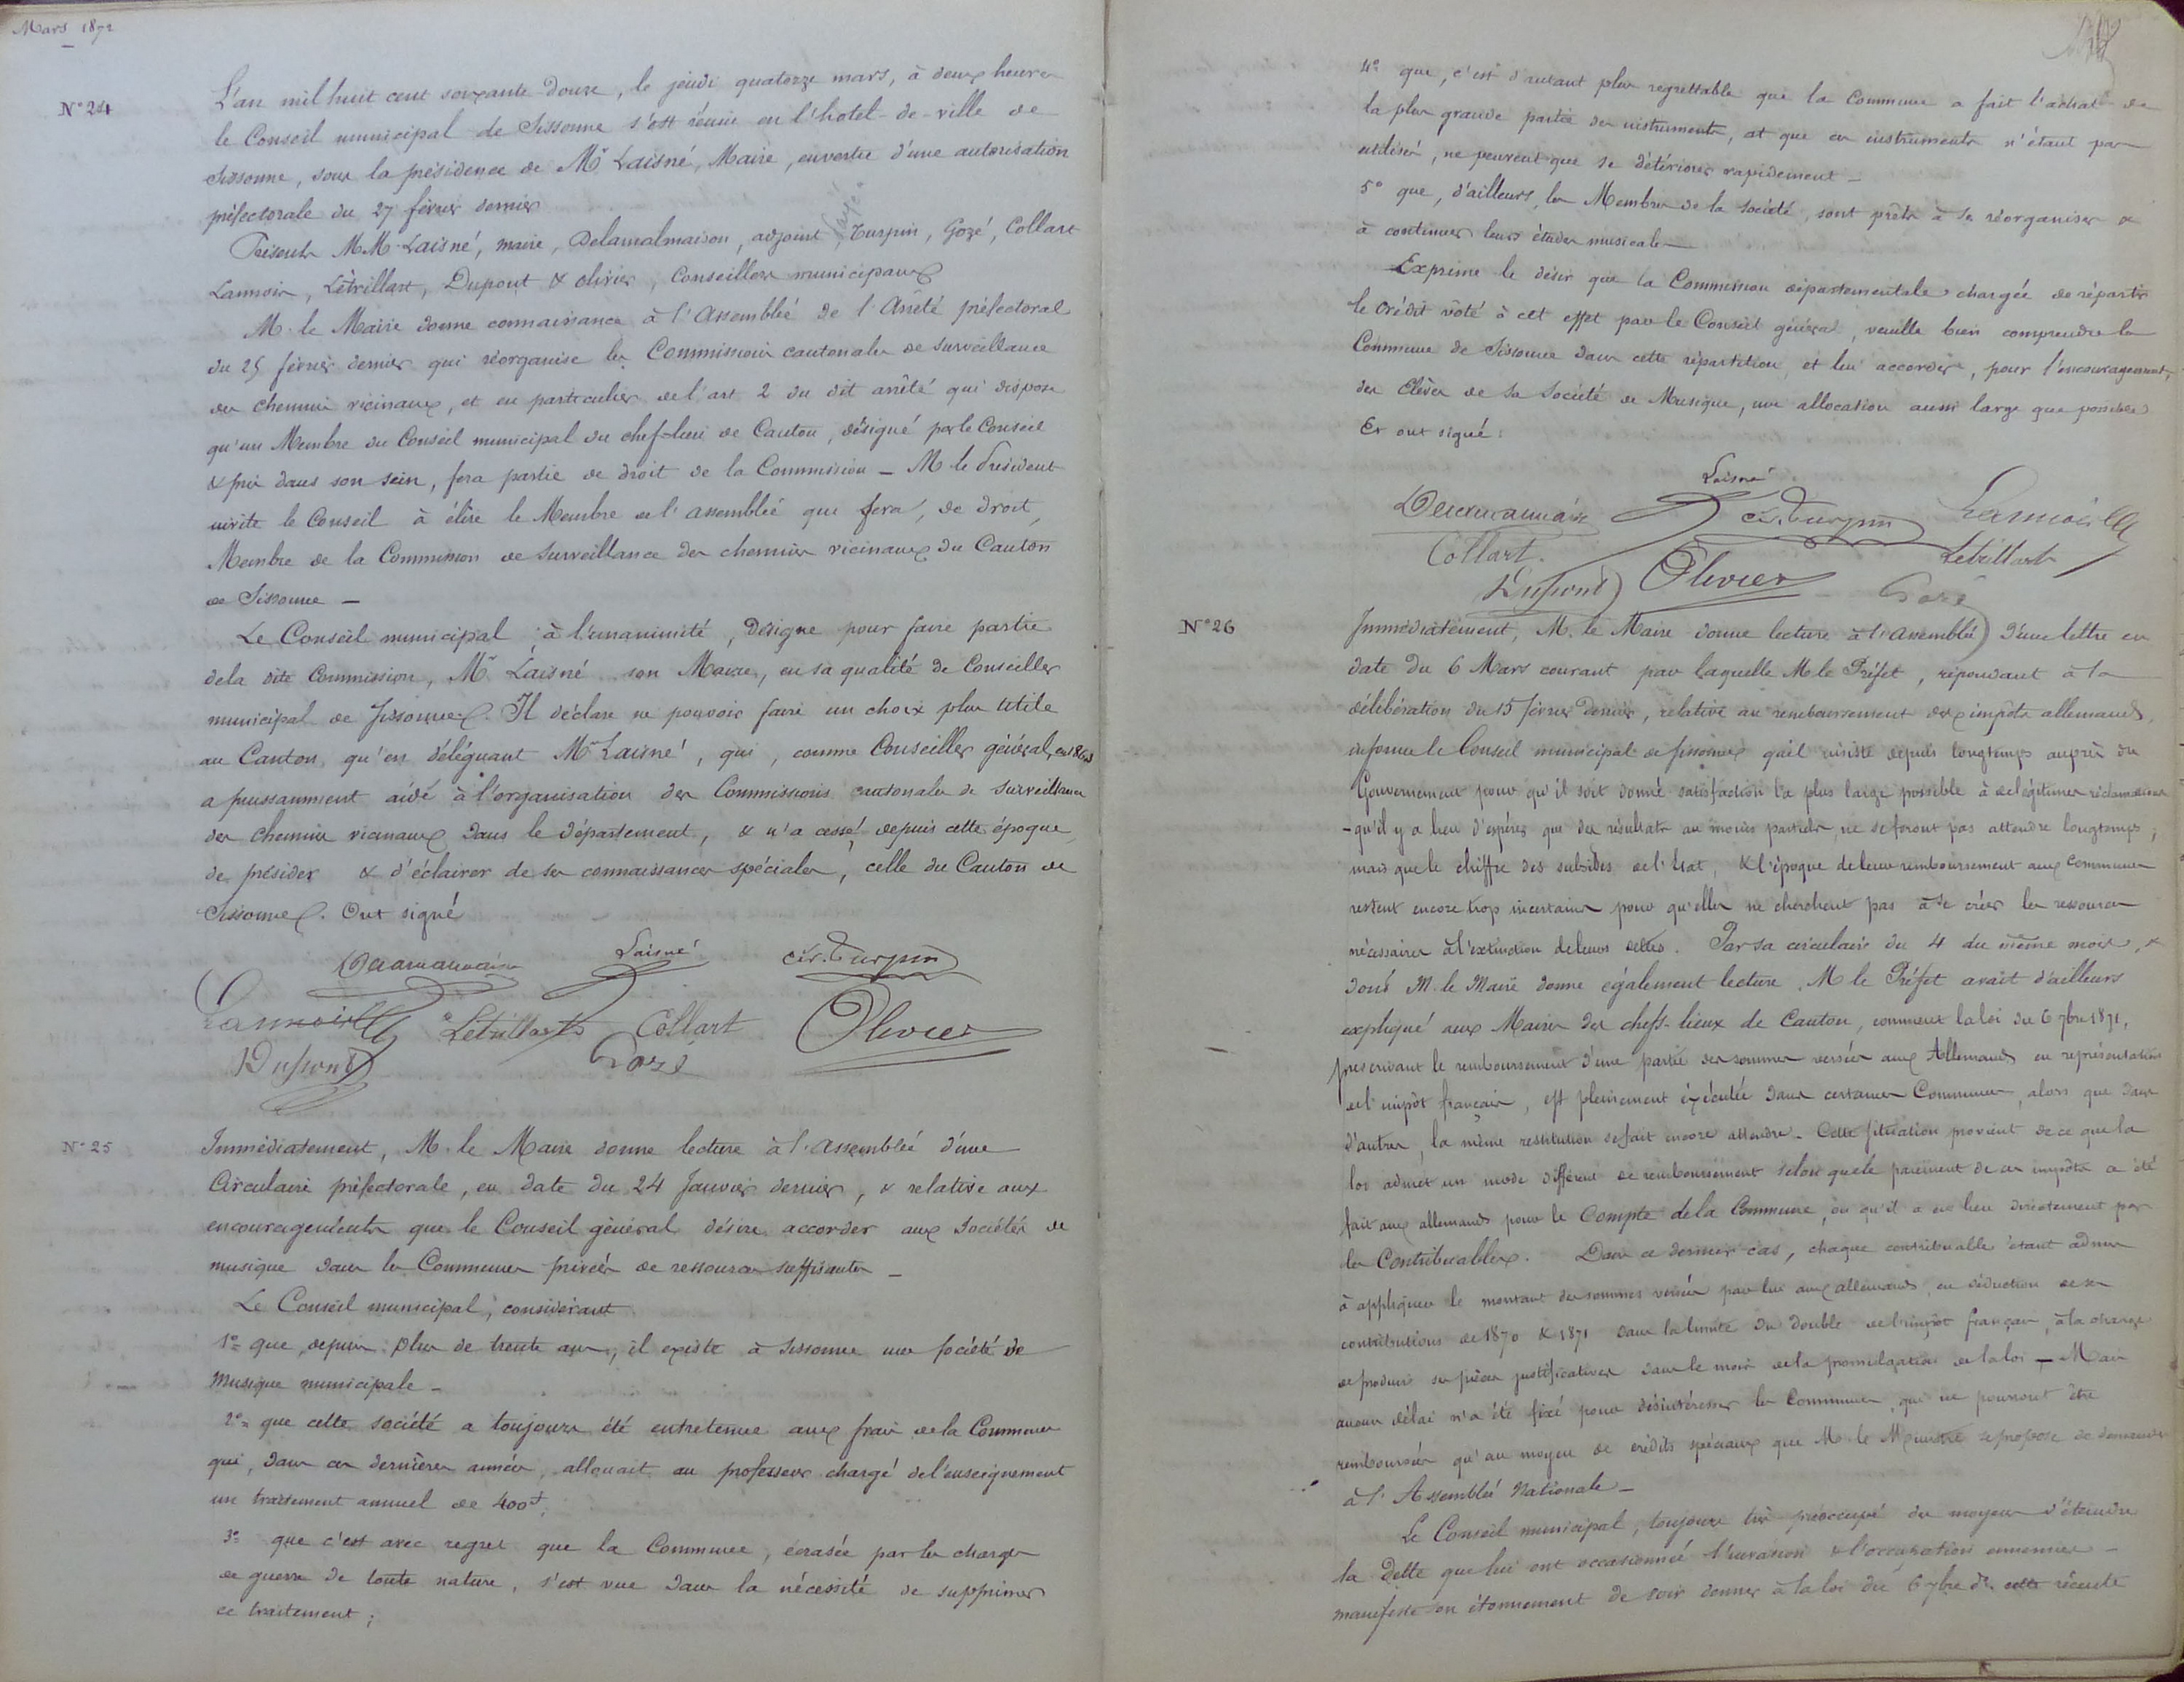 Mars 1872
N° 24
L'an mil huit cent soixante douze, le jeudi quatorze mars, à deux heures
le Conseil municipal de Sissonne s'est réuni en l'hotel-de-ville de
Sissonne, sous la présidence de Mr Laisné, Maire, en vertu d'une autorisation
préfectorale du 27 février dernier
Présents MM. Laisné, maire, Delamalmaison, adjoint, Turpin, Gozé, Collart
Lannois, Létrillart, Dupont & Olivier, Conseillers municipaux
M. le Maire donne connaissance à l'Assemblée de l'Arrêté préfectoral
du 25 février dernier qui réorganise les Commissions cantonales de surveillance
des chemins vicinaux, et en particulier de l'art 2 du dit arrêté qui dispose
qu'un Membre du Conseil municipal du chef-lieu de Canton, désigné par le Conseil
& pris dans son sein, fera partie de droit de la Commission _ M le Président
invite le Conseil à élire le Membre de l'assemblée qui fera, de droit,
Membre de la Commission de Surveillance des chemins vicinaux du Canton
de Sissonne _
Le Conseil municipal, à l'unanimité, Désigne pour faire partie
de la dite Commission, Mr Laisné son Maire, en sa qualité de Conseiller
municipal de Sissonne. Il déclare ne pouvoir faire un choix plus utile
au Canton, qu'en déléguant Mr Laisné, qui, comme Conseiller général, en
a puissamment aidé à l'organisation des Commissions cantonales de Surveillance
des chemins vicinaux dans le département, & n'a cessé, depuis cette époque
de présider & d'éclairer de ses connaissances spéciales, celle du Canton de
Sissonne. Ont signé
Delamalmaison Laisné Cir. Turpin
Lannois Létrillart Collart Olivier
Dupont Gozé
N° 25
Immédiatement, M. le Maire donne lecture à l'Assemblée d'une
Circulaire préfectorale, en date du 24 Janvier dernier, & relative aux
encouragements que le Conseil général désire accorder aux Sociétés de
musique dans les Communes privées de ressources suffisantes _
Le Conseil municipal, considérant
1° que, depuis plus de trente ans, il existe à Sissonne une Société de
Musique municipale _
2° que cette société a toujours été entretenue aux frais de la Commune
qui, dans ces dernières années, allouait au professeur chargé de l'enseignement
un traitement annuel de 400f;
3° que c'est avec regret que la Commune, écrasée par les charges
de guerre de toute nature, s'est vue dans la nécessité de supprimer
ce traitement;
4° que, c'est d'autant plus regrettable que la Commune a fait l'achat de
la plus grande partie des instruments, et que ces instruments n'étant pas
utilisés, ne peuvent que se détériorer rapidement _
5° que, d'ailleurs, les Membres de la Société, sont prêts à se réorganiser &
à continuer leurs études musicales _
Exprime le désir que la Commission départementale chargée de répartir
le Crédit voté à cet effet par le Conseil général, veuille bien comprendre la
Commune de Sissonne dans cette répartition, et lui accorder, pour l'encouragement
des Elèves de sa Société de Musique, une allocation aussi large que possible
Et ont signé:
Delamalmaison Laisné Cir. Turpin Lannois
Collart Létrillart
Dupont Olivier Gozé
N° 26
Immédiatement, M. le Maire donne lecture à l'assemblée d'une lettre en
date du 6 Mars courant par laquelle M le Préfet, répondant à la
délibération du 15 février dernier, relative au remboursement des impôts allemands,
informe le Conseil municipal de Sissonne qu'il insiste depuis longtemps auprès du
Gouvernement pour qu'il soit donné satisfaction la plus large possible à de légitimes réclamations
- qu'il y a lieu d'espérer que des résultats au moins partiels, ne se feront pas attendre longtemps;
mais que le chiffre des subsides de l'Etat, & l'époque de leur remboursement aux communes
restent encore trop incertains pour qu'elles ne cherchent pas à se créer les ressources
nécessaires à l'extinction de leurs dettes. Par sa circulaire du 4 du même mois, &
dont M. le Maire donne également lecture, M le Préfet avait d'ailleurs
expliqué aux Maires des chefs-lieux de Canton, comment la loi du 6 7bre 1871,
prescrivant le remboursement d'une partie des sommes versées aux Allemands en représentation
de l'impôt français, est pleinement exécutée dans certaines Communes, alors que dans
d'autres, la même restitution se fait encore attendre. Cette situation provient de ce que la
loi admet un mode différent de remboursement selon que le paiement de ces impôts a été
fait aux allemands pour le Compte de la Commune, ou qu'il a eu lieu directement par
les Contribuables. Dans ce dernier cas, chaque contribuable étant admis
à appliquer le montant des sommes versées par lui aux allemands, en déduction de ses
contributions de 1870 & 1871 dans la limite du double de l'impôt français, à la charge
de produire ses pièces justificatives dans le mois de la promulgation de la loi _ Mais
aucun délai n'a été fixé pour désintéresser les Communes, qui ne pourront être
remboursées qu'au moyen de crédits spéciaux que M. le Ministre se propose de demander
à l'Assemblée Nationale _
Le Conseil municipal, toujours très préoccupé des moyens d'éteindre
la Dette que lui ont occasionnée l'invasion & l'occupation ennemies _
manifeste son étonnement de voir donner à la loi du 6 7bre dr. cette récente